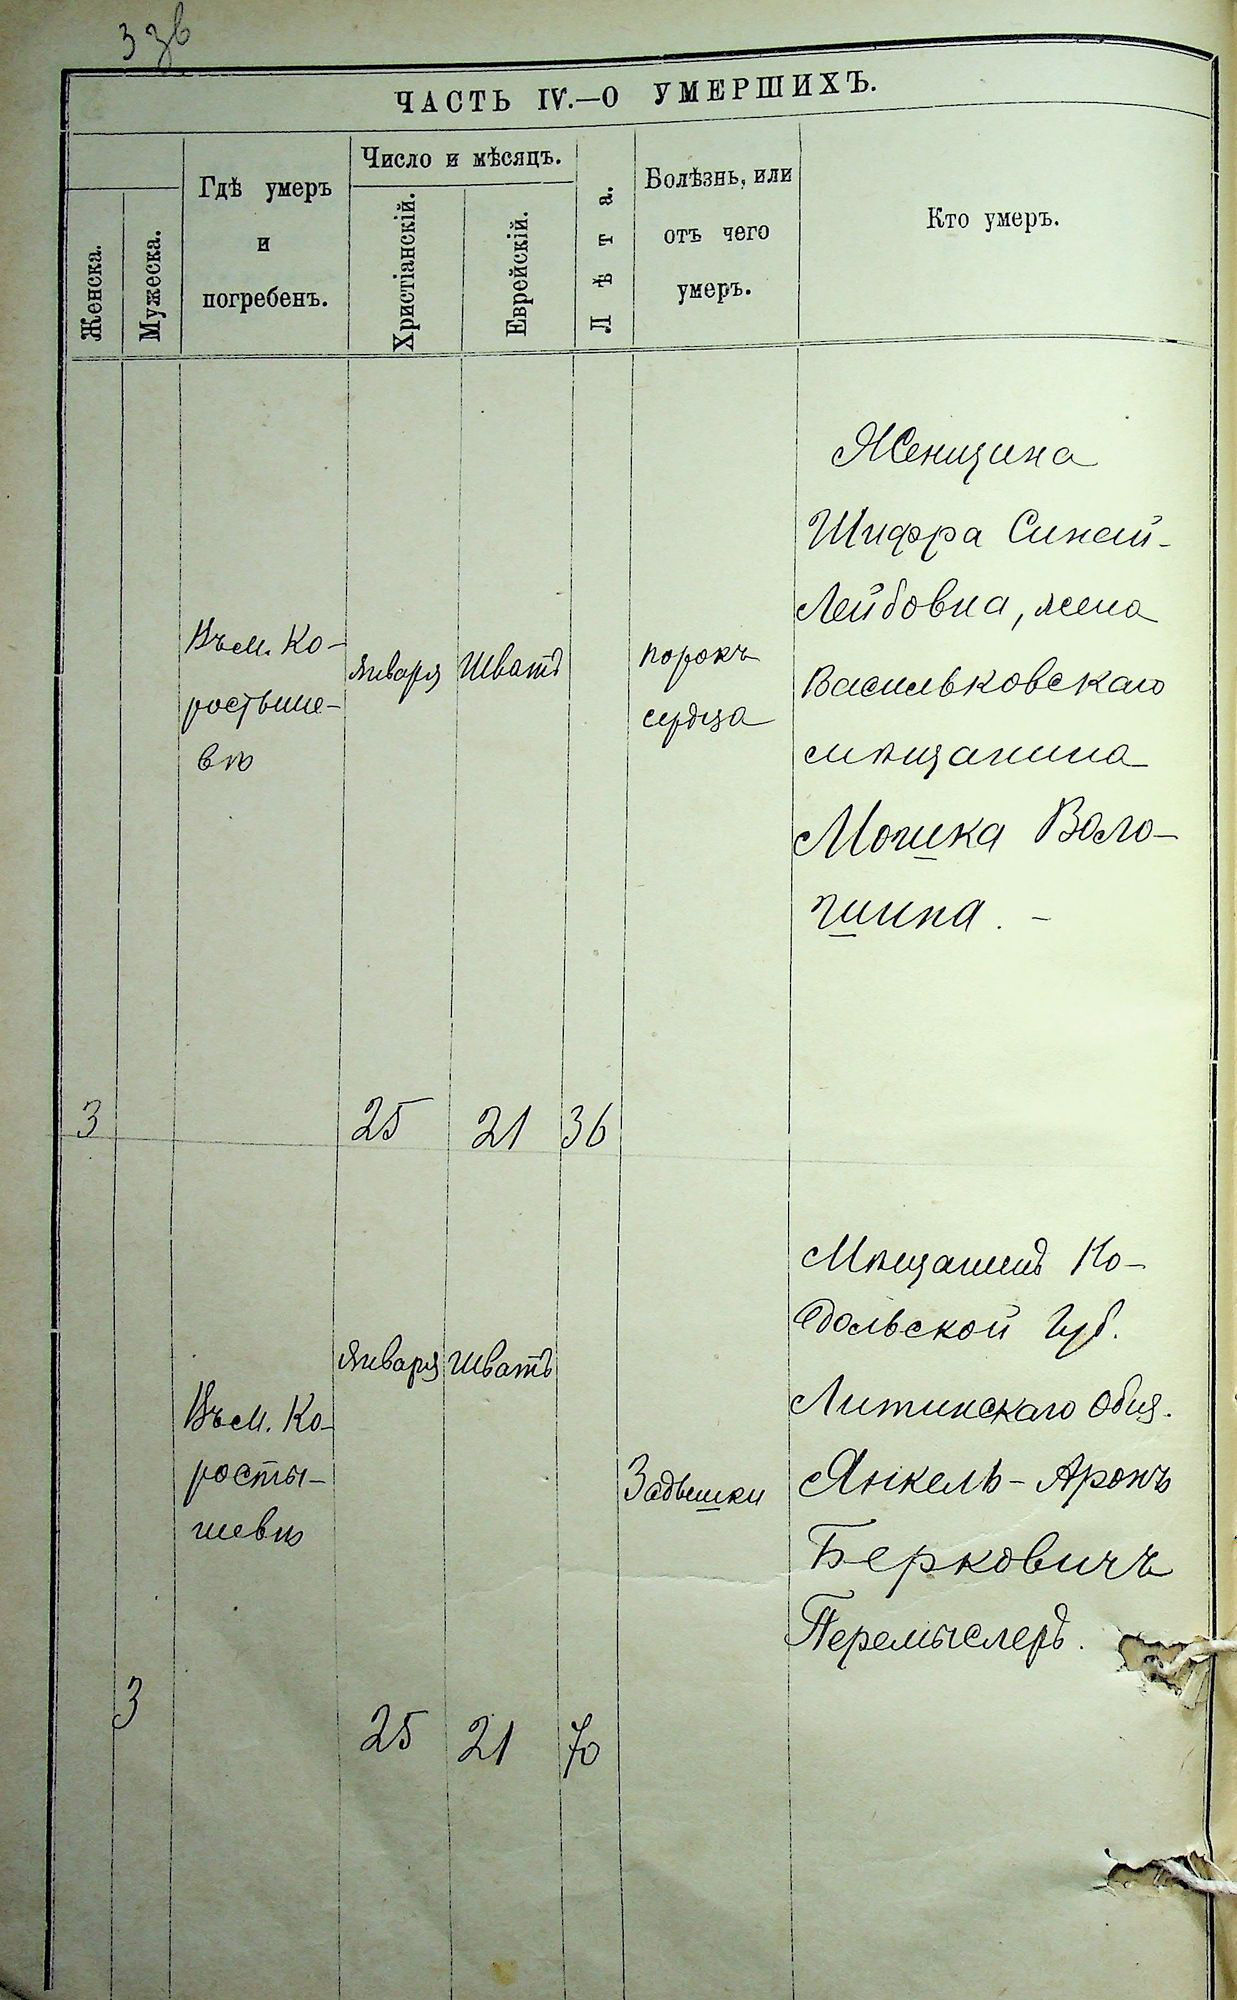 33б
ЧАСТЬ IV.—О УМЕРШИХЪ.
Женска.
Мужеска.
Гдѣ умеръ
и
погребенъ.
Число и мѣсяцъ.
Христіанскій.
Еврейскій.
Лѣта.
Болѣзнь, или
отъ чего
умеръ.
Кто умеръ.
Въ м. Ко-
ростыше-
вѣ
Января
Шватъ
порокъ
сердца
Женщина
Шифра Синай-
Лейбовна, жена
Васильковскаго
мѣщанина
Мошка Воло-
шина. –
3
25
21
36
Въ м. Ко-
росты-
шевѣ
Января
Шватъ
Задышки
Мѣщанинъ По-
дольской Губ.
Литинскаго Общ.
Янкель-Аронъ
Берковичъ
Перемыслеръ.
3
25
21
70